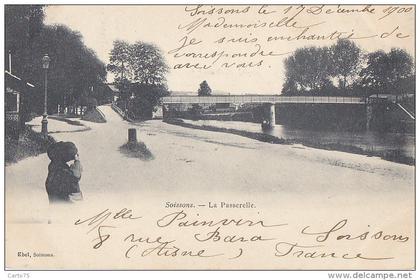 Soissons le 17 Décembre 1900
Mademoiselle,
Je suis enchantée de
correspondre
avec vous.
Soissons. — La Passerelle.
Ebel, Soissons.
Mlle Painvin
8 rue Bara Soissons
(Aisne) France
www.delcampe.net